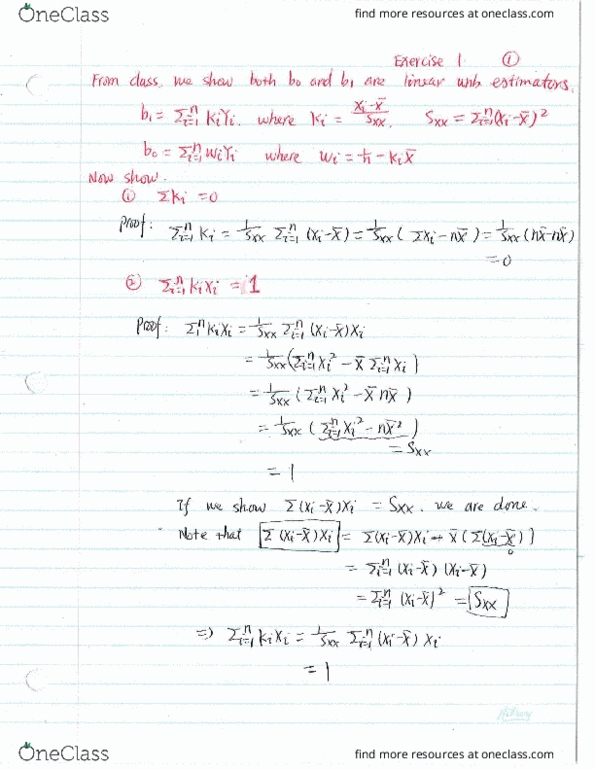 OneClass
find more resources at oneclass.com
Exercise 1 ①
From class, we show both b₀ and b₁ are linear unb estimators.
b₁ = Σᵢ₌₁ⁿ kᵢYᵢ. where kᵢ = (xᵢ-x̄)/Sxx. Sxx = Σᵢ₌₁ⁿ(xᵢ-x̄)²
b₀ = Σᵢ₌₁ⁿ wᵢYᵢ where wᵢ = 1/n - kᵢx̄
Now show.
① Σkᵢ = 0
Proof: Σᵢ₌₁ⁿ kᵢ = 1/Sxx Σᵢ₌₁ⁿ (xᵢ-x̄) = 1/Sxx ( Σxᵢ - nx̄) = 1/Sxx (nx̄-nx̄)
= 0
② Σᵢ₌₁ⁿ kᵢxᵢ = 1
Proof: Σ₁ⁿ kᵢxᵢ = 1/Sxx Σᵢ₌₁ⁿ (xᵢ-x̄)xᵢ
= 1/Sxx (Σᵢ₌₁ⁿ xᵢ² - x̄ Σᵢ₌₁ⁿ xᵢ)
= 1/Sxx (Σᵢ₌₁ⁿ xᵢ² - x̄ nx̄ )
= 1/Sxx ( Σᵢ₌₁ⁿ xᵢ² - nx̄² )
= Sxx
= 1
If we show Σ(xᵢ-x̄)xᵢ = Sxx. we are done.
Note that Σ (xᵢ-x̄)xᵢ = Σ(xᵢ-x̄)xᵢ - x̄ (Σ(xᵢ-x̄))
0
= Σᵢ₌₁ⁿ (xᵢ-x̄) (xᵢ-x̄)
= Σᵢ₌₁ⁿ (xᵢ-x̄)² = Sxx
=> Σᵢ₌₁ⁿ kᵢxᵢ = 1/Sxx Σᵢ₌₁ⁿ (xᵢ-x̄) xᵢ
= 1
OneClass
find more resources at oneclass.com